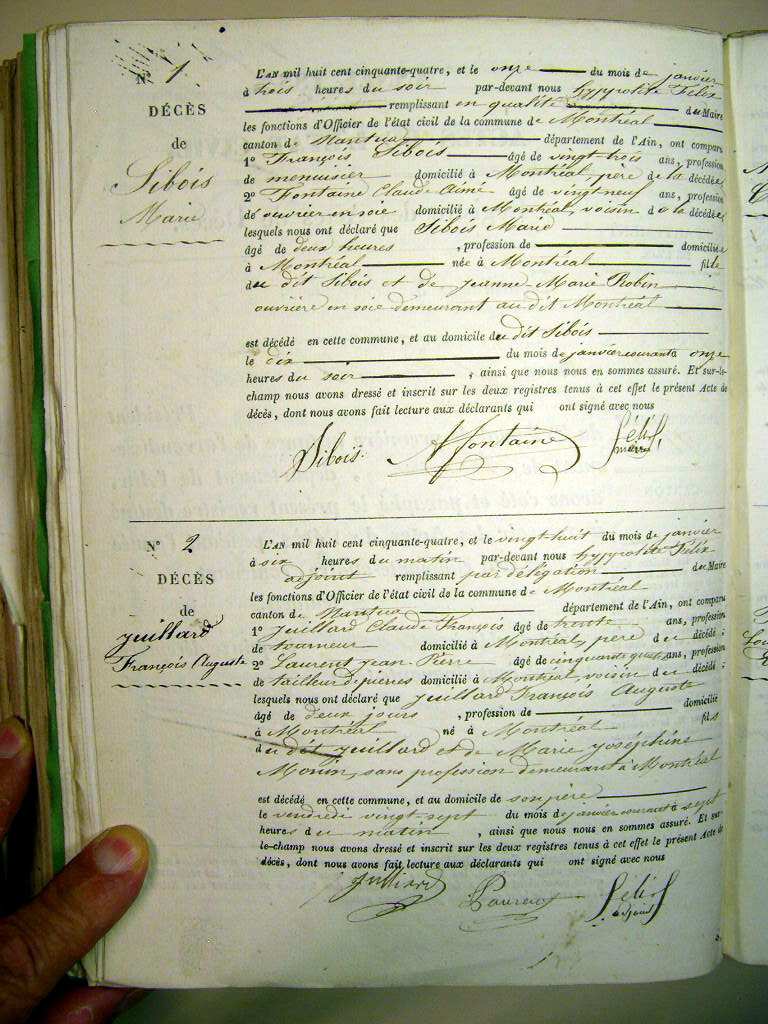 N° 1
DÉCÈS
de
Sibois
Marie
L'AN mil huit cent cinquante-quatre, et le onze du mois de janvier
à trois heures du soir par-devant nous hyppolite Félix
remplissant en qualité de Maire
les fonctions d'Officier de l'état civil de la commune de Montréal
canton de Nantua département de l'Ain, ont comparu
1° François Sibois âgé de vingt trois ans, profession
de menuisier domicilié à Montréal, père de la décédée
2° Fontaine Claude Aimé âgé de vingt neuf ans, profession
de ouvrier en soie domicilié à Montréal, voisin de la décédée
lesquels nous ont déclaré que Sibois Marie
âgé de deux heures , profession de domiciliée
à Montréal née à Montréal fille
du dit Sibois et de Jeanne Marie Robin
ouvrière en soie demeurant au dit Montréal
est décédé en cette commune, et au domicile du dit Sibois
le dix du mois de janvier courant à onze
heures du soir , ainsi que nous nous en sommes assuré. Et sur-le-
champ nous avons dressé et inscrit sur les deux registres tenus à cet effet le présent Acte de
décès, dont nous avons fait lecture aux déclarants qui ont signé avec nous
Sibois. Fontaine Félix
maire
N° 2
DÉCÈS
de
Juillard
François Auguste
L'AN mil huit cent cinquante-quatre, et le vingt huit du mois de janvier
à six heures du matin par-devant nous hyppolite Félix
adjoint remplissant par délégation de Maire
les fonctions d'Officier de l'état civil de la commune de Montréal
canton de Nantua département de l'Ain, ont comparu
1° Juillard Claude François âgé de trente ans, profession
de tourneur domicilié à Montréal, père du décédé ;
2° Laurent Jean Pierre âgé de cinquante quatre ans, profession
de tailleur de pierres domicilié à Montréal, voisin du décédé ;
lesquels nous ont déclaré que Juillard François Auguste
âgé de deux jours , profession de domicilié
à Montréal né à Montréal fils
du dit Juillard et de Marie Joséphine
Monin, sans profession demeurant à Montréal
est décédé en cette commune, et au domicile de son père
le vendredi vingt sept du mois de janvier courant à sept
heures du matin , ainsi que nous nous en sommes assuré. Et sur-
le-champ nous avons dressé et inscrit sur les deux registres tenus à cet effet le présent Acte de
décès, dont nous avons fait lecture aux déclarants qui ont signé avec nous
Julliard Laurent Félix
adjoint